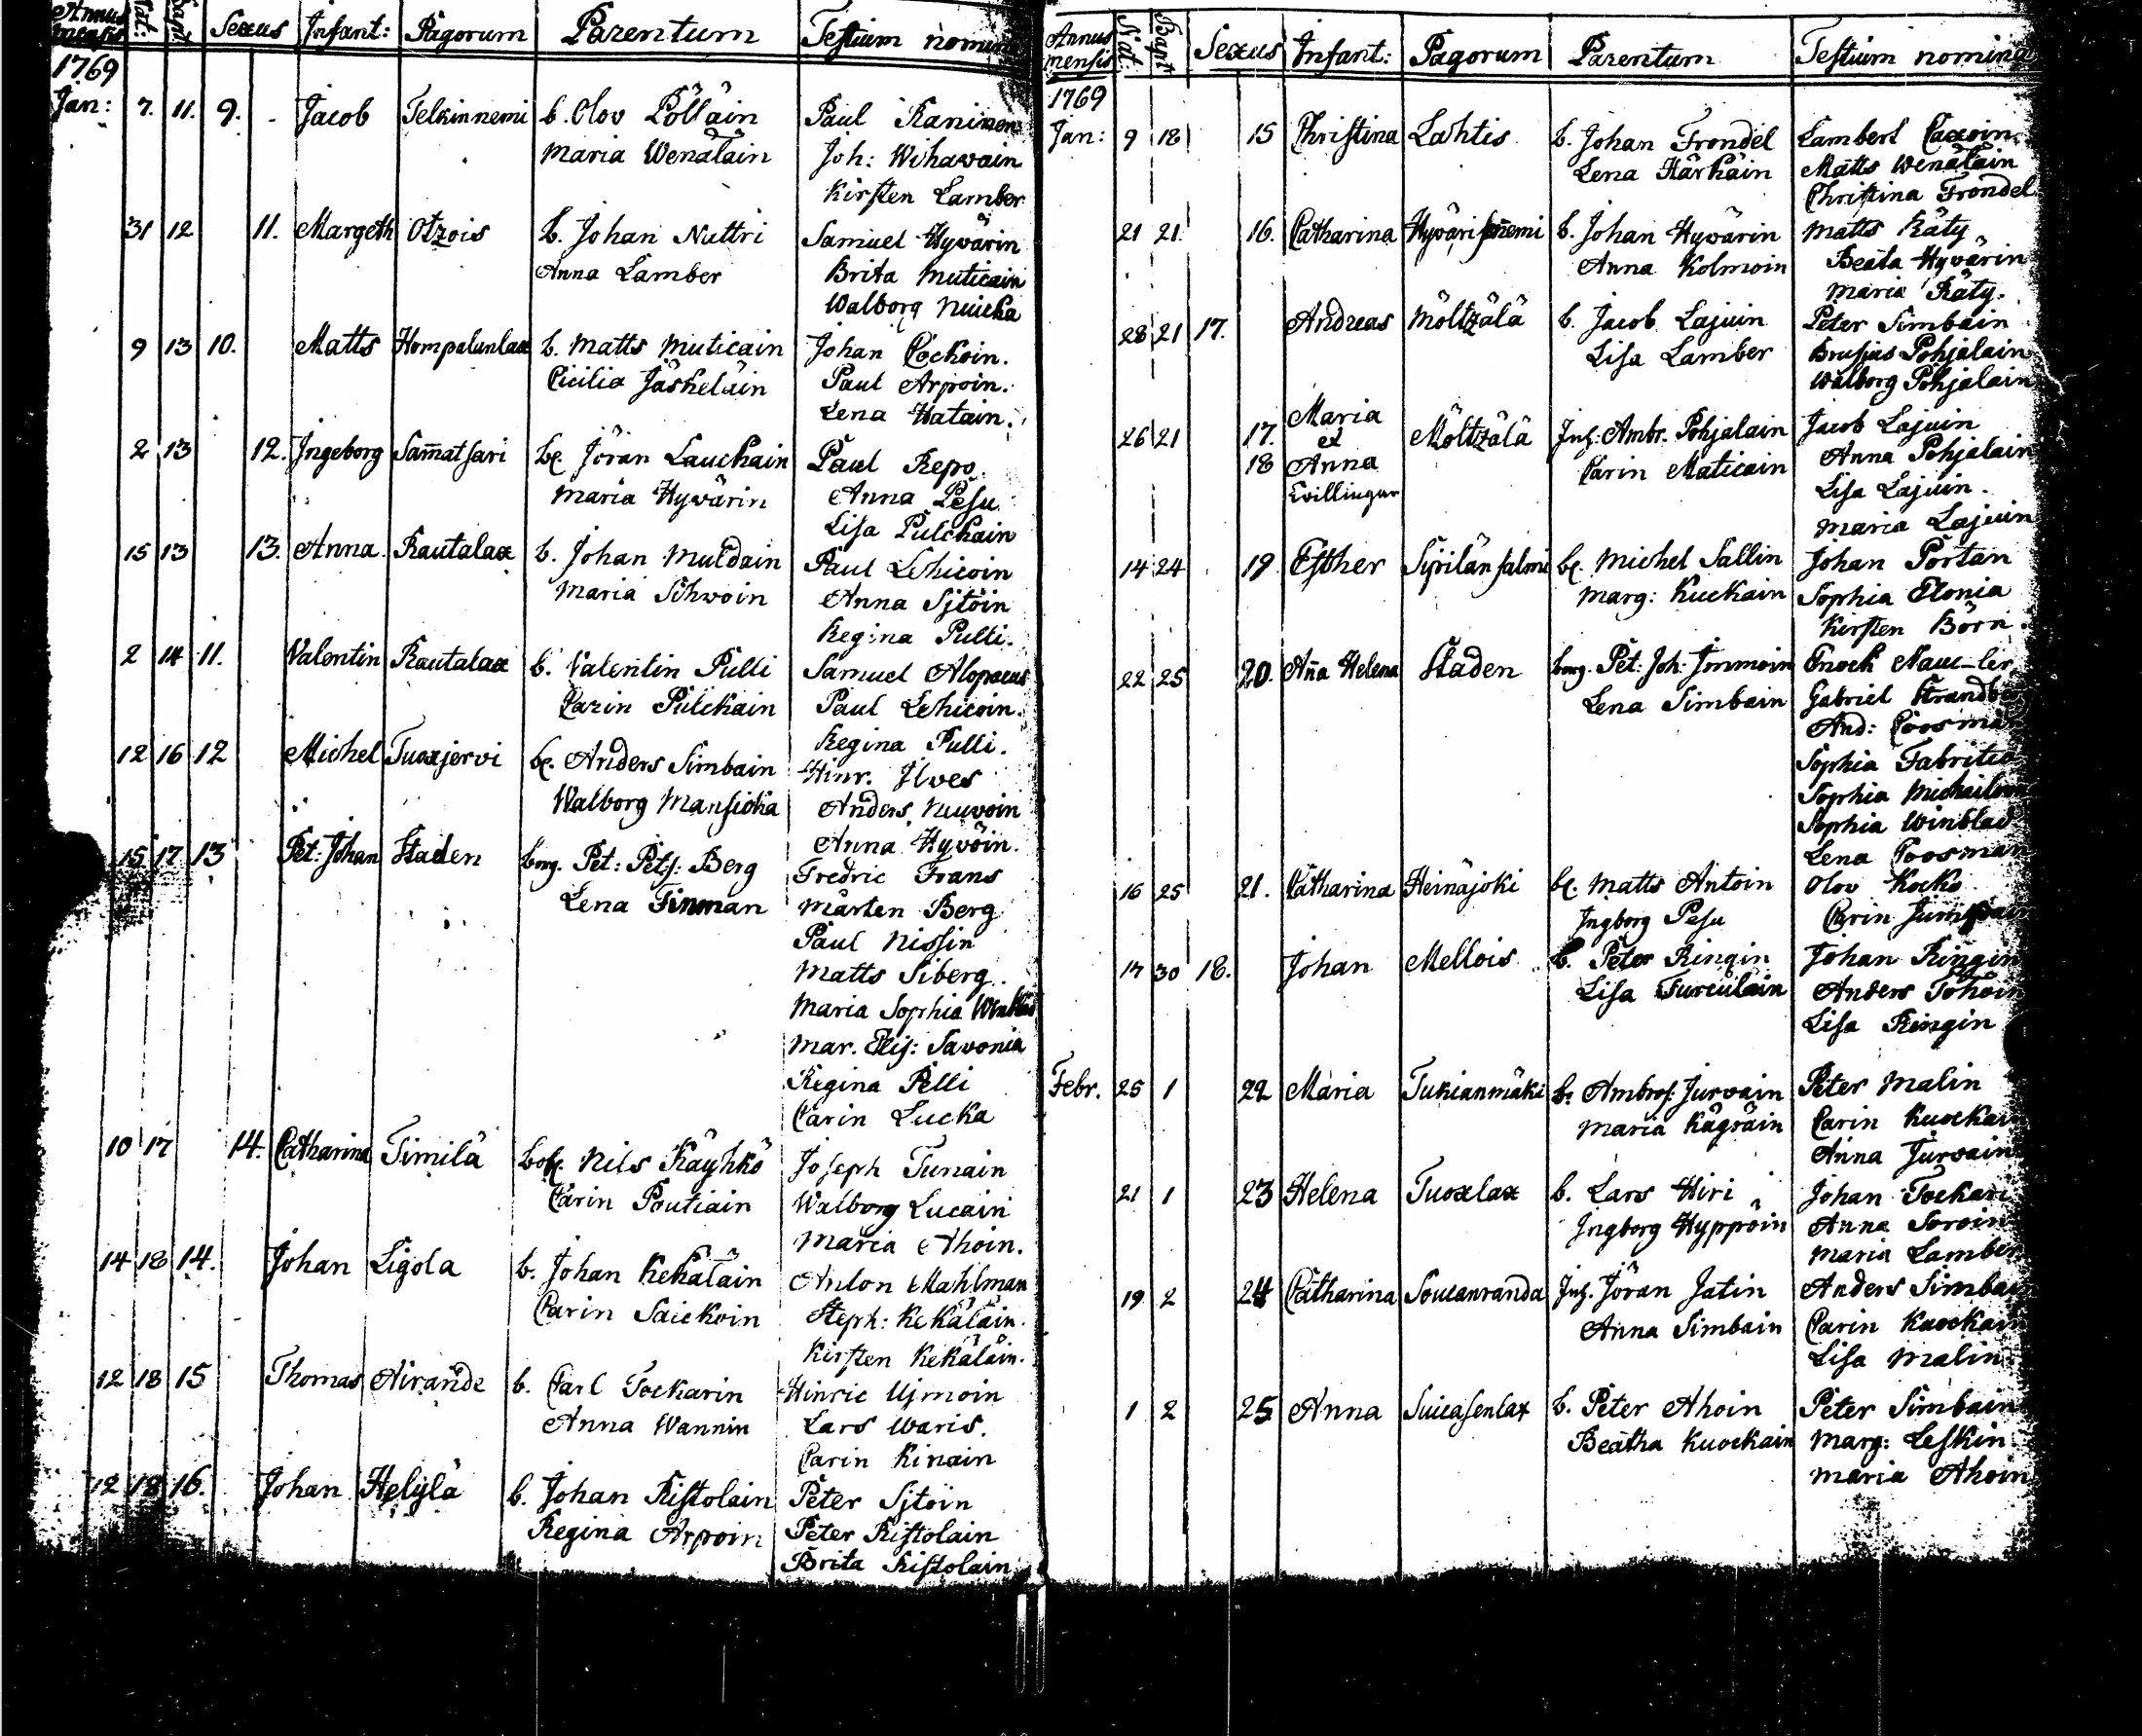 Annus mensis Nat: Bapt Sexus Infant: Pagorum Parentum Testium nomina
1769
Jan: 7. 11. 9. Jacob Telkinnemi b. Olov Pölläin Paul Kaninen
Maria Wenäläin Joh: Wihavain
Kirsten Lamber
31 12 11. Margeth Otzois b. Johan Nuttri Samuel Hyvärin
Anna Lamber Brita Muticain
Walborg Nuicka
9 13 10. Matts Hompalanlax b. Matts Muticain Johan Cockoin.
Cicilia Jäskeläin Paul Arpoin.
Lena Hatain.
2 13 12. Ingeborg Sam̄atsari be. Jöran Lauckain Paul Repo.
Maria Hyvärin Anna Pesu
Lisa Pulckain
15 13 13. Anna Rautalax b. Johan Muldain Paul Lehicoin
Maria Sihwoin Anna Sjtöin
Regina Pulli.
2 14 11. Valentin Rautalax b. Valentin Pulli Samuel Alopaeus
Carin Pulckain Paul Lehicoin.
Regina Pulli.
12 16 12 Michel Tuoxjervi be. Anders Simbain Hinr. Ilves
Walborg Mansicka Anders Nuwoin
Anna Hyvöin.
15 17 13 Pet: Johan Staden borg. Pet: Petj: Berg Fredric Frans
Lena Finman Mårten Berg
Paul Nissin
Matts Siberg.
Maria Sophia Winblad
Mar. Elis: Savonia
Regina Pelli
Carin Lucka
10 17 14. Catharina Timilä Nils Käyhkö Joseph Tunain
Carin Poutiain Walborg Lucain
Maria Ahoin.
14 18 14. Johan Ligola b. Johan Kekäläin Anton Mahlman
Carin Saickoin Steph: Kekäläin.
Kirsten Kekäläin.
12 18 15 Thomas Airande b. Carl Tockarin Hinric Ujmoin
Anna Wannin Lars Waris.
Carin Kinain
12 18 16. Johan Helylä b. Johan Ristolain Peter Sjtöin
Regina Arpoin Peter Ristolain
Brita Ristolain
Annus mensis Nat. Bapt Sexus Infant: Pagorum Parentum Testium nomina
1769
Jan: 9 18 15 Christina Lahtis b. Johan Frondel Lambert
Lena Härkäin Matts Wenäläin
Christina Frondel
21 21. 16. Catharina Hyvärisnemi b. Johan Hyvärin Matts Räty
Anna Kolmoin Beata Hyvärin
Maria Räty.
28 21 17. Andreas Möltzälä b. Jacob Lajuin Peter Simbain
Lisa Lamber Brusius Pohjalain
Walborg Pohjalain
26 21 17. Maria Möltzälä Inh: Ambr. Pohjalain Jacob Lajuin
et Carin Maticain Anna Pohjalain
18 Anna Lisa Lajuin.
tvillingar Maria Lajuin
14 24 19 Esther Sipilänsalmi be. Michel Sallin Johan Portan
Marg: Kuckain Sophia Elonia
Kirsten Börn.
22 25 20. An̄a Helena Staden borg. Pet: Joh: Immoin Enock
Lena Simbain Gabriel Strandberg
And: Poosman
Sophia Fabritia
Sophia
Sophia Winblad
Lena Poosman
16 25 21. Catharina Heinäjoki be. Matts Antoin Olov Kocko
Ingborg Pesu Carin
17 30 18. Johan Mellois b. Peter Ringin Johan Ringin
Lisa Turculain Anders Tohoin
Lisa Ringin
Febr. 25 1 22 Maria Tukianmäki b. Ambros. Jurvain Peter Malin
Maria Kägräin Carin Kuockain
Anna Jurvain
21 1 23 Helena Tuoxlax b. Lars Hiri Johan Tockari
Ingborg Hyppöin Anna Soroin
Maria Lamber
19 2 24 Catharina Soucanranda Inh. Jöran Jatin Anders Simbain
Anna Simbain Carin Kuockain
Lisa Malin
1 2 25 Anna Suicasenlax b. Peter Ahoin Peter Simbain
Beatha Kuockain Marg: Leskin
Maria Ahoin